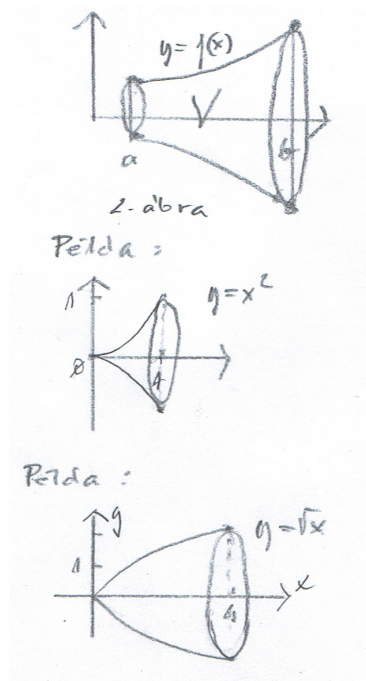 y=f(x)
V
a
b
2. ábra
Példa:
1
y=x²
0
1
Példa:
y
y=√x
1
x
4